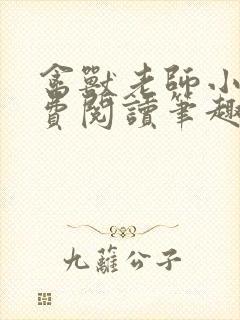 禽獸老師小
費閱讀筆趣
九蘿公子